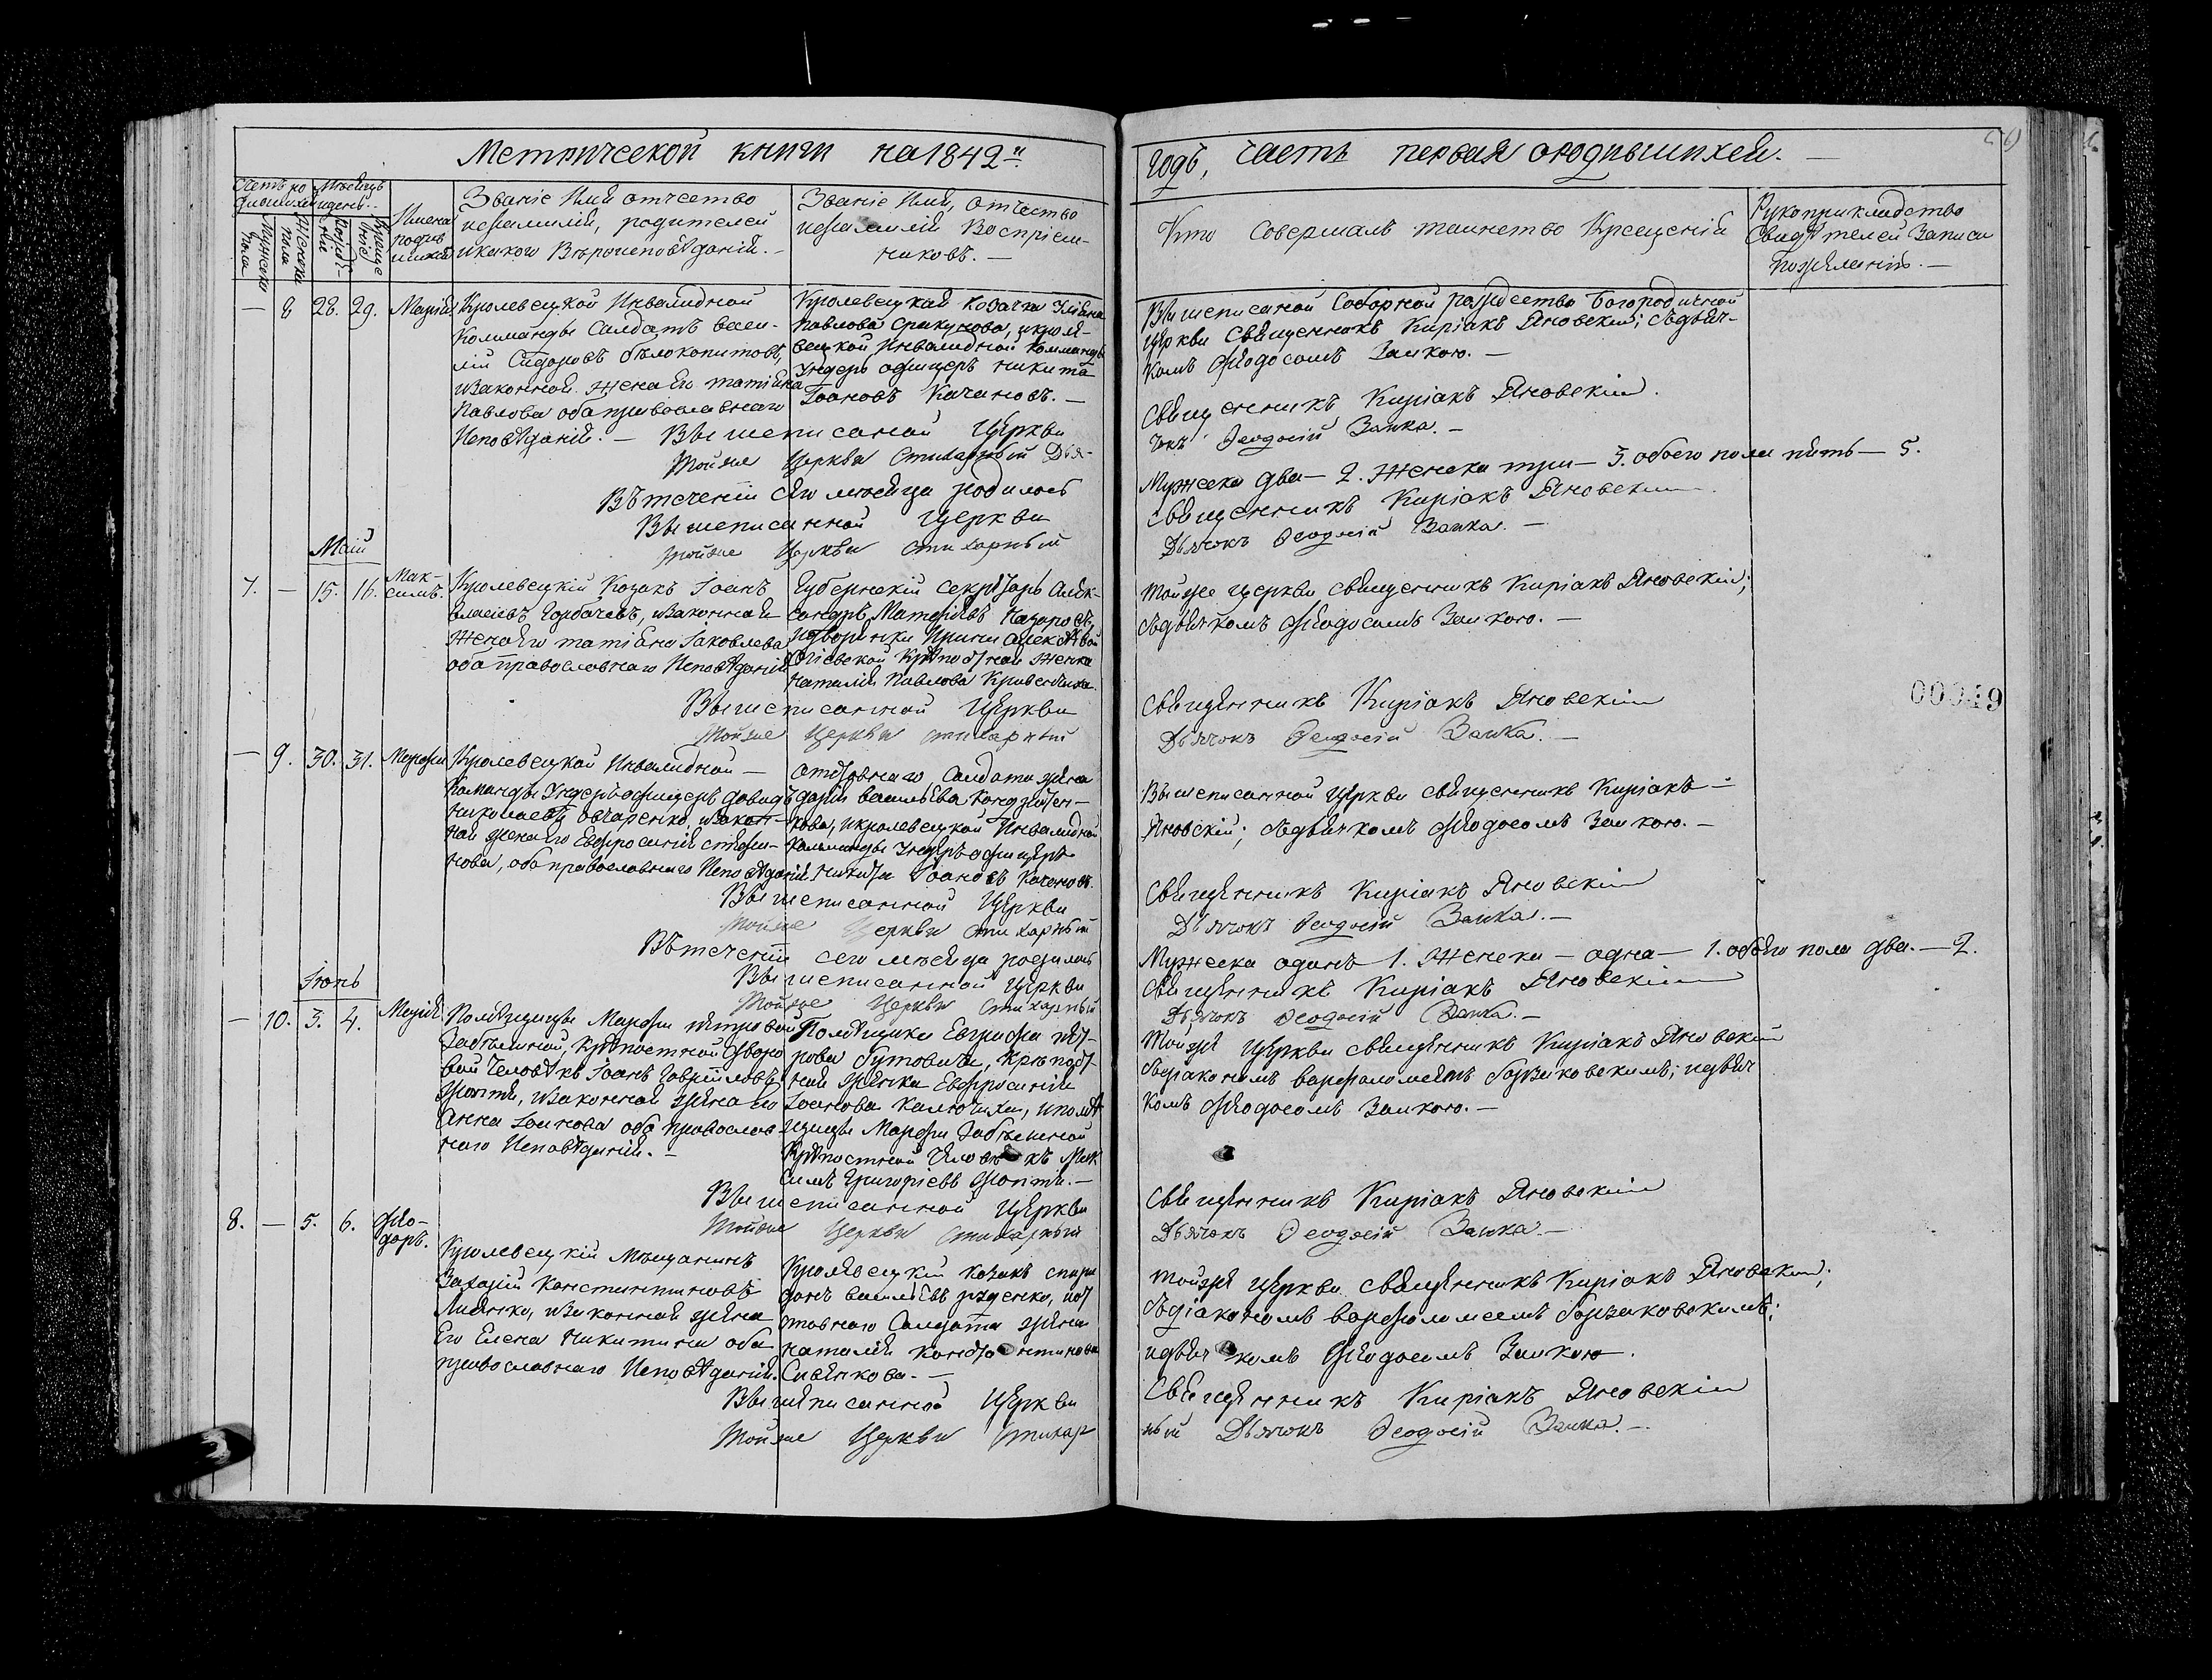 Метрической книги на 1842й
годъ, часть первая о родившихся. —
Мѣсяцъ
и день.
Мужеска
пола
Женска
пола
Имена
родив
шихся
Званіе Имя отчество
и фамилія, родителей
и какого Вѣроисповѣданія. —
Званіе Имя, отчество
и фамилія Воспріем-
никовъ. —
Кто Совершалъ таинство Крещенія
Рукоприкладство
Свидѣтелей Записи
по желанію. —
— 8 28. 29. Марія
Кролевецкой Инвалидной
Комманды Салдатъ васи-
лій Сидоровъ бѣлокопитовъ,
и Законная жена Его татіяна
Павлова оба православнаго
Исповѣданія. —
Кролевецкая козачка
Павлова и кроле-
вецкой Инвалидной Комманды
Ундеръ офицеръ никита
Іоановъ Качановъ. —
Вышеписаной Соборной рождество Богородичной
церкви Священникъ Киріакъ Яновскій; съ дьяч-
комъ Феодосомъ Заикою. —
Вышеписаной Церкви
Священникъ Киріакъ Яновскій.
Тойже Церкви Стихарный Дья-
чокъ Ѳеодосій Заика. —
Въ теченіи сего мѣсяца родилось
Мужеска два — 2. Женска три — 3. обоего пола пять — 5.
Вышеписанной Церкви
Священникъ Киріакъ Яновскій
тойже Церкви стихарный
Дьячокъ Ѳеодосій Заика. —
Маій
7. — 15. 16. Мак-
симъ.
Кролевецкій Козакъ Іоанъ
власіевъ Горбачевъ, и Законная
жена Его татіана Іаковлева
оба православнаго Исповѣданія
Губернскій Секретарь Алек-
сандръ Матфіевъ Назаровъ,
и дворянки Ирины Алексѣевой
крѣпостная женка
наталія Павлова
тойже церкви священникъ Киріакъ Яновскій;
съ дьячкомъ Феодосомъ Заикою. —
Вышеписанной Церкви
Священникъ Киріакъ Яновскій
Тойже Церкви стихарный
Дьячокъ Ѳеодосій Заика. —
00049
— 9. 30. 31. Марфа
Кролевецкой Инвалидной —
Команды Ундеръ офицеръ давидъ
николаевъ Овчаренко, и Закон-
ная жена Его Евфросинія стефа-
нова, оба православнаго Исповѣданія.
Отставнаго Салдата жена
дарія васильева
кова, и кролевецкой Инвалидной
Комманды Ундеръ офицеръ
никита Іоановъ Качановъ.
Вышеписанной Церкви священникъ Киріакъ —
Яновскій; съ дьячкомъ Феодосомъ Заикою. —
Вышеписанной Церкви
Священникъ Киріакъ Яновскій
Тойже Церкви стихарный
Дьячокъ Ѳеодосій Заика. —
Въ теченіи сего мѣсяца родилось
Мужеска одинъ 1. Женска — одна — 1. обоего пола два. — 2.
Вышеписанной Церкви
Священникъ Киріакъ Яновскій
Тойже Церкви Стихарный
Дьячокъ Ѳеодосій Заика. —
Іюнь
— 10. 3. 4. Марія
Помѣщицы Марфы петровой
Забѣлиной, крѣпостной дворо
вый человѣкъ Іоанъ Гавріиловъ
и Законная жена его
Анна Іоанова оба православ
наго Исповѣданія. —
Помѣщика Евграфа пет-
рова бутовича, крѣпост-
ная женка Евфросинія
Іоанова и помѣ
щицы Марфы Забѣлиной
крѣпостной человѣкъ Мак
симъ Григоріевъ
Тойже Церкви священникъ Киріакъ Яновскій
съ діакономъ варфоломеемъ и дьяч
комъ Феодосомъ Заикою. —
Вышеписанной Церкви
Священникъ Киріакъ Яновскій
Тойже Церкви Стихарный
Дьячокъ Ѳеодосій Заика —
8. — 5. 6. Фео-
доръ.
Кролевецкій Мѣщанинъ
Захарій Константиновъ
и Законная жена
Его Елена Никитина оба
православнаго Исповѣданія.
Кролевецкій Козакъ спири
донъ васильевъ и от
ставнаго Салдата жена
наталія Константинова
тойже церкви священникъ Киріакъ Яновскій;
съ діакономъ варфоломеемъ
и дьячкомъ Феодосомъ Заикою.
Вышеписанной Церкви
Священникъ Киріакъ Яновскій
Тойже Церкви Стихар
ный Дьячокъ Ѳеодосій Заика. —